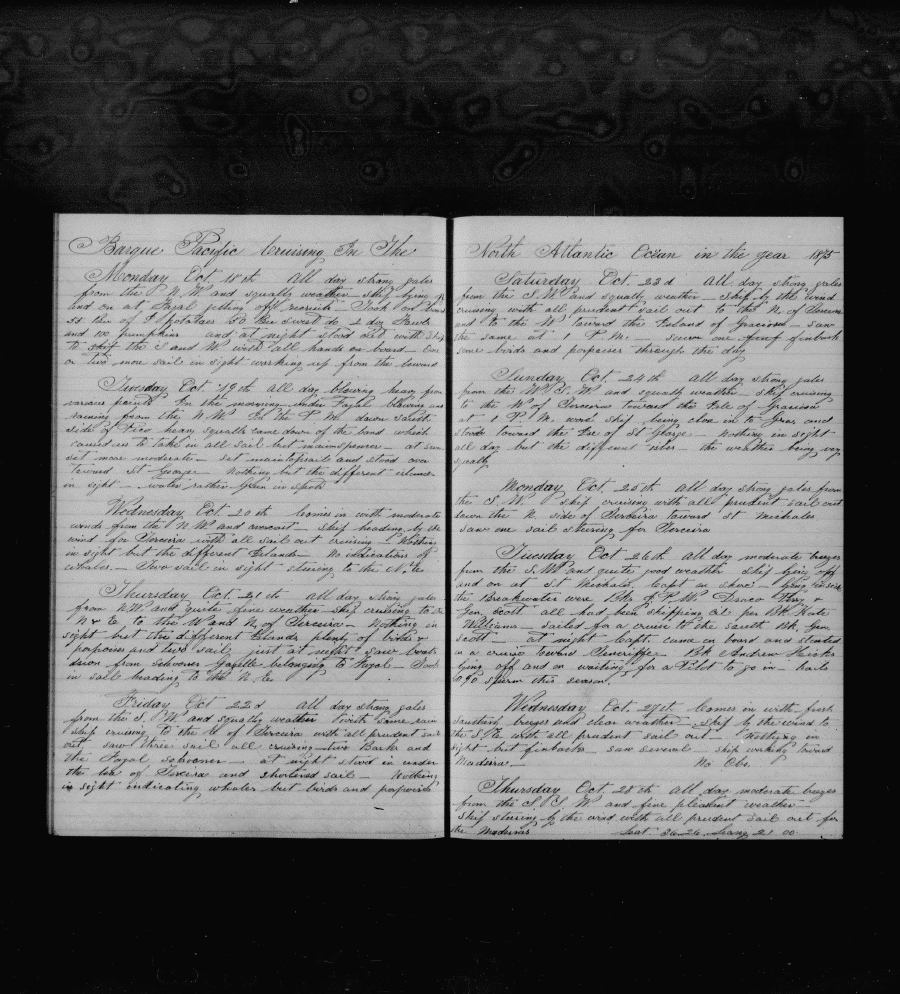 Barque Pacific Cruising In The
Monday Oct. 18th All day strong gales
from the N. W. and squally weather ship lying
and on at Fayal getting off recruits Took on board
of potatoes
and 100 pumpkins and at night stood out with ship
to the S and W with all hands on board One
or two more sail in sight working up from the leward
Tuesday Oct 19th All day blowing heavy from
various points In the morning under Fayal blowing and
raining from the N W. In the P. M. down
side of Pico heavy squalls came down of the land which
caused us to take in all sail but mainspencer at sun
set more moderate set maintopsail and stood over
toward St George Nothing but the different islands
in sight water rather green in spots
Wednesday Oct 20th Comes in with moderate
winds from the N W and overcast Ship heading by the
wind for Terceira with all sail out cruising Nothing
in sight but the different Islands No indications of
whales Two sail in sight steering to the N.
Thursday Oct. 21th all day strong gales
from N.W. and quite fine weather ship cruising to the
N & E. to the W and N. of Terceira Nothing in
sight but the different Islands plenty of birds &
porpoises and two sail just at night saw boats
down from Schooner Gazelle belonging to Fayal Took
in sail heading to the N. E.
Friday Oct 22d All day strong gales
from the S. W. and squally weather with some rain
ship cruising to the of Terceira with all prudent sail
out saw three sail all cruising two Barks and
the Fayal schooner at night stood in under
the lee of Terceira and shortened sail Nothing
in sight indicating whales but birds and porpoises
North Atlantic Ocean in the year 1875
Saturday Oct. 23d All day strong gales
from the S.W. and squally weather Ship by the wind
cruising with all prudent sail out to the N. of Terceira
and to the W toward the Island of Graciosa saw
the same at 1 P M. saw one finback
some birds and porpoises through the day
Sunday Oct. 24th All day strong gales
from the W. S. W. and squally weather ship cruising
to the W of Terceira toward the Isle of Graciosa
at 1 P. M. wore ship being close in to and
stood toward the Isle of St George Nothing in sight
all day but the different isles the weather being very
squally
Monday Oct. 25th All day strong gales from
the S. W ship cruising with all prudent sail out
down the N. side of Terceira toward St Michales
saw one sail steering for Terceira
Tuesday Oct 26th All day moderate breezes
from the S.W. and quite good weather ship lying off
and on at St Michales Capt on shore lying inside
the Breakwater were &
Gen. Scott all had been shipping oil per Bk Kate
Williams sailed for a cruise to the South Bk Gen.
Scott at night Capt. came on board and started
on a cruise toward Teneriffe Bk Andrew Hicks
lying off and on waiting for a Pilot to go in hails
sperm this season.
Wednesday Oct. 27th Comes in with fresh
breezes and clear weather ship by the wind to
the S. E. with all prudent sail out Nothing in
sight but finbacks saw several ship working toward
Madeira No Obs.
Thursday Oct. 28th All day moderate breezes
from the S. S. W and fine pleasant weather
Ship steering by the wind with all prudent sail out for
the Madeiras Lat 36.26 Long 21 00